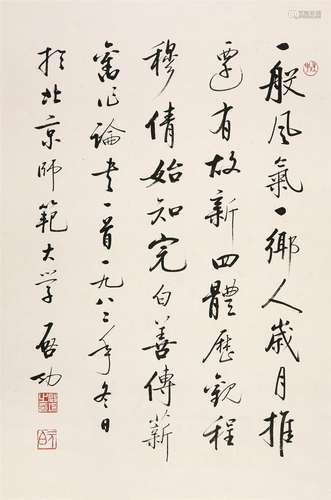 一般風氣一鄉人歲月推
遷有故新四體歷觀程
穆倩始知完白善傳薪
舊作論書一首一九八二年冬日
於北京師範大學 啟功